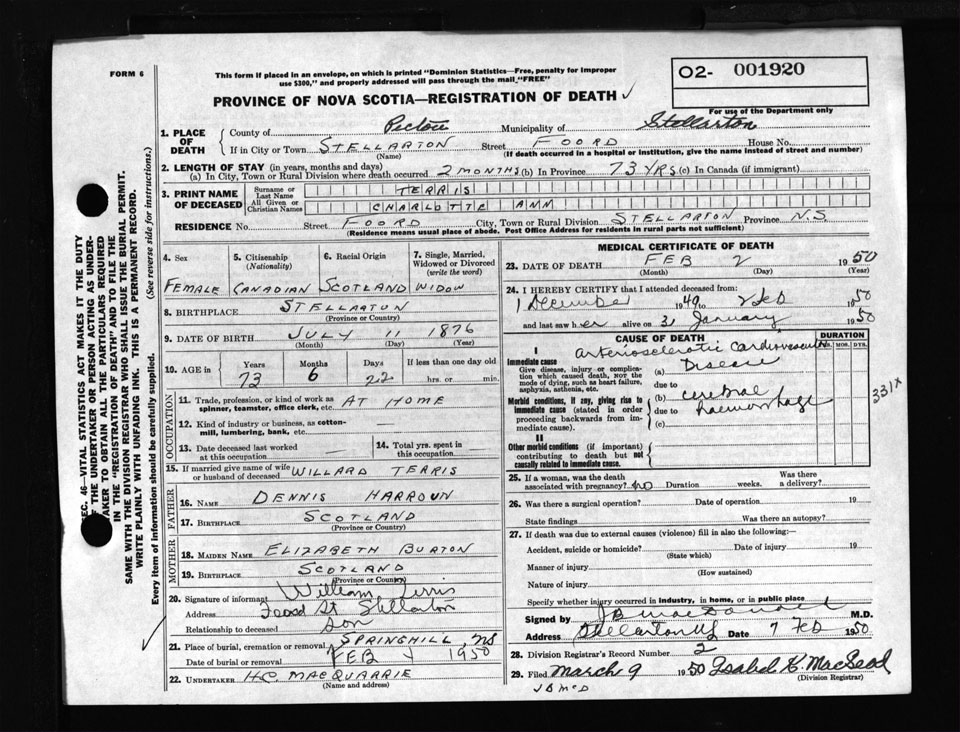 FORM 6
This form if placed in an envelope, on which is printed "Dominion Statistics—Free, penalty for improper
use $300," and properly addressed will pass through the mail "FREE"
PROVINCE OF NOVA SCOTIA—REGISTRATION OF DEATH ✓
O2- 001920
For use of the Department only
1. PLACE OF DEATH { County of Pictou Municipality of Stellarton
If in City or Town STELLARTON Street FOORD House No.
(Name) (If death occurred in a hospital or institution, give the name instead of street and number)
2. LENGTH OF STAY (in years, months and days)
(a) In City, Town or Rural Division where death occurred 2 MONTHS (b) In Province 73 YRS (c) In Canada (if immigrant)
3. PRINT NAME OF DECEASED { Surname or Last Name TERRIS
All Given or Christian Names CHARLOTTE ANN
RESIDENCE No. Street FOORD City, Town or Rural Division STELLARTON Province N.S.
(Residence means usual place of abode. Post Office Address for residents in rural parts not sufficient)
4. Sex
FEMALE
5. Citizenship
(Nationality)
CANADIAN
6. Racial Origin
SCOTLAND
7. Single, Married,
Widowed or Divorced
(write the word)
WIDOW
8. BIRTHPLACE STELLARTON
(Province or Country)
9. DATE OF BIRTH JULY 11 1876
(Month) (Day) (Year)
10. AGE in Years Months Days If less than one day old
73 6 22 hrs. or min.
OCCUPATION
11. Trade, profession, or kind of work as
spinner, teamster, office clerk, etc. AT HOME
12. Kind of industry or business, as cotton-
mill, lumbering, bank, etc. —
13. Date deceased last worked
at this occupation —
14. Total yrs. spent in
this occupation —
15. If married give name of wife
or husband of deceased WILLARD TERRIS
FATHER
16. NAME DENNIS HARROUN
17. BIRTHPLACE SCOTLAND
(Province or Country)
MOTHER
18. MAIDEN NAME ELIZABETH BURTON
19. BIRTHPLACE SCOTLAND
(Province or Country)
20. Signature of informant William Terris
Address Foord St Stellarton
Relationship to deceased Son
21. Place of burial, cremation or removal SPRINGHILL, NS
Date of burial or removal FEB 1950
22. UNDERTAKER H.C. MACQUARRIE
(Name and address)
MEDICAL CERTIFICATE OF DEATH
23. DATE OF DEATH FEB 2 1950
(Month) (Day) (Year)
24. I HEREBY CERTIFY that I attended deceased from:
1 December 1949 to 2 Feb 1950
and last saw her alive on 31 January 1950
CAUSE OF DEATH DURATION
YRS. MOS. DYS.
I
Immediate cause
Give disease, injury or complica-
tion which caused death, not the
mode of dying, such as heart failure,
asphyxia, asthenia, etc.
(a) Arteriosclerotic Cardiovascular
Disease
due to
Morbid conditions, if any, giving rise to
immediate cause (stated in order
proceeding backwards from im-
mediate cause).
(b) cerebral
due to haemorrhage
(c)
331X
II
Other morbid conditions (if important)
contributing to death but not
causally related to immediate cause.
25. If a woman, was the death
associated with pregnancy? no Duration weeks. Was there
a delivery?
26. Was there a surgical operation? Date of operation 19
State findings Was there an autopsy?
27. If death was due to external causes (violence) fill in also the following:—
Accident, suicide or homicide? Date of injury 19
(State which)
Manner of injury
(How sustained)
Nature of injury
Specify whether injury occurred in industry, in home, or in public place
Signed by J B MacDonald M.D.
Address Stellarton NS Date 7 Feb 1950
28. Division Registrar's Record Number 2
29. Filed March 9 1950 Isabel K. MacLeod
(Division Registrar)
J B McD
SEC. 46—VITAL STATISTICS ACT MAKES IT THE DUTY
OF THE UNDERTAKER OR PERSON ACTING AS UNDER-
TAKER TO OBTAIN ALL THE PARTICULARS REQUIRED
IN THE "REGISTRATION OF DEATH" AND TO FILE THE
SAME WITH THE DIVISION REGISTRAR WHO SHALL ISSUE THE BURIAL PERMIT.
WRITE PLAINLY WITH UNFADING INK. THIS IS A PERMANENT RECORD.
Every item of information should be carefully supplied. (See reverse side for instructions.)